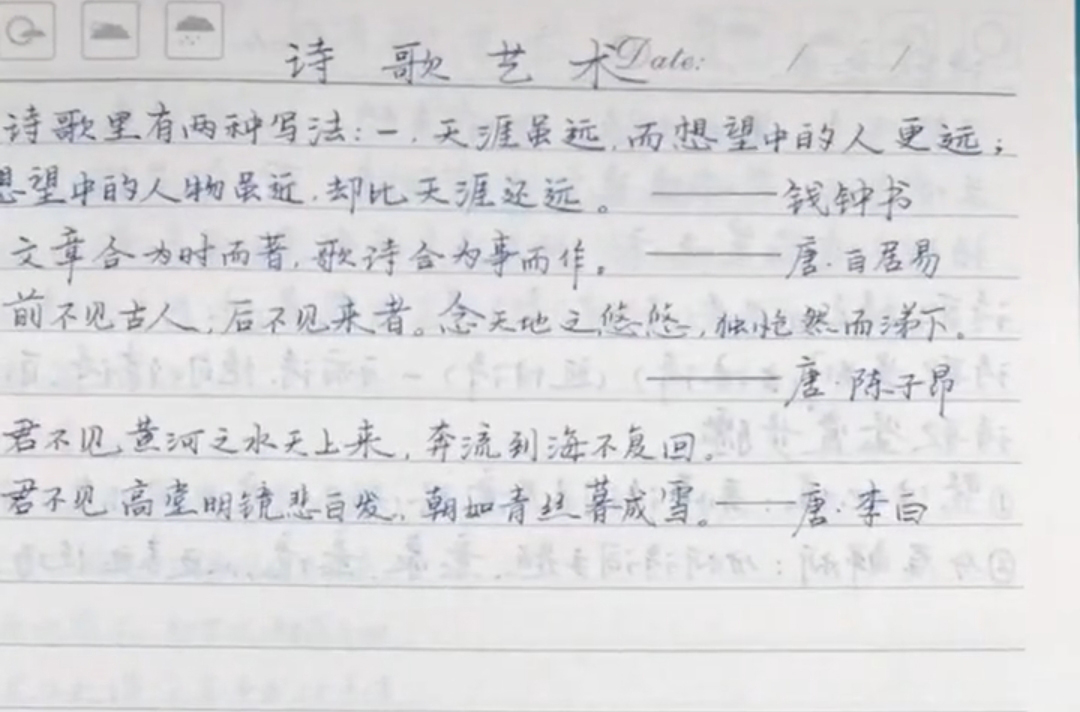 诗歌艺术 Date: / /
诗歌里有两种写法:一.天涯虽远,而想望中的人更远;
想望中的人物虽近,却比天涯还远。——钱钟书
文章合为时而著,歌诗合为事而作。——唐·白居易
前不见古人,后不见来者。念天地之悠悠,独怆然而涕下。
——唐·陈子昂
君不见黄河之水天上来,奔流到海不复回。
君不见高堂明镜悲白发,朝如青丝暮成雪。——唐·李白